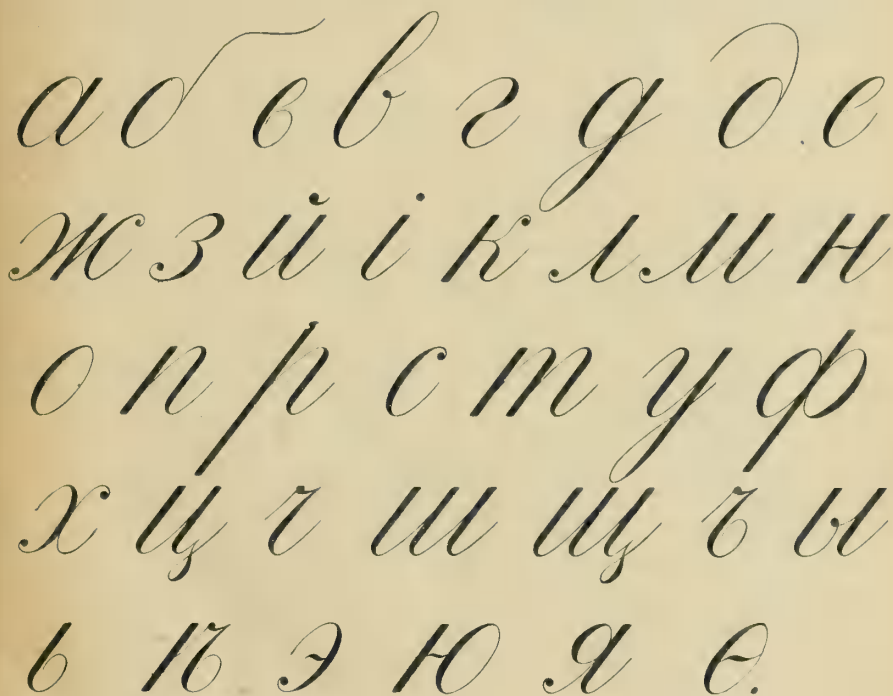 а б в в г д д е
ж з й і к л м н
о п р с т у ф
х ц ч ш щ ъ ы
ь ѣ э ю я ѳ.